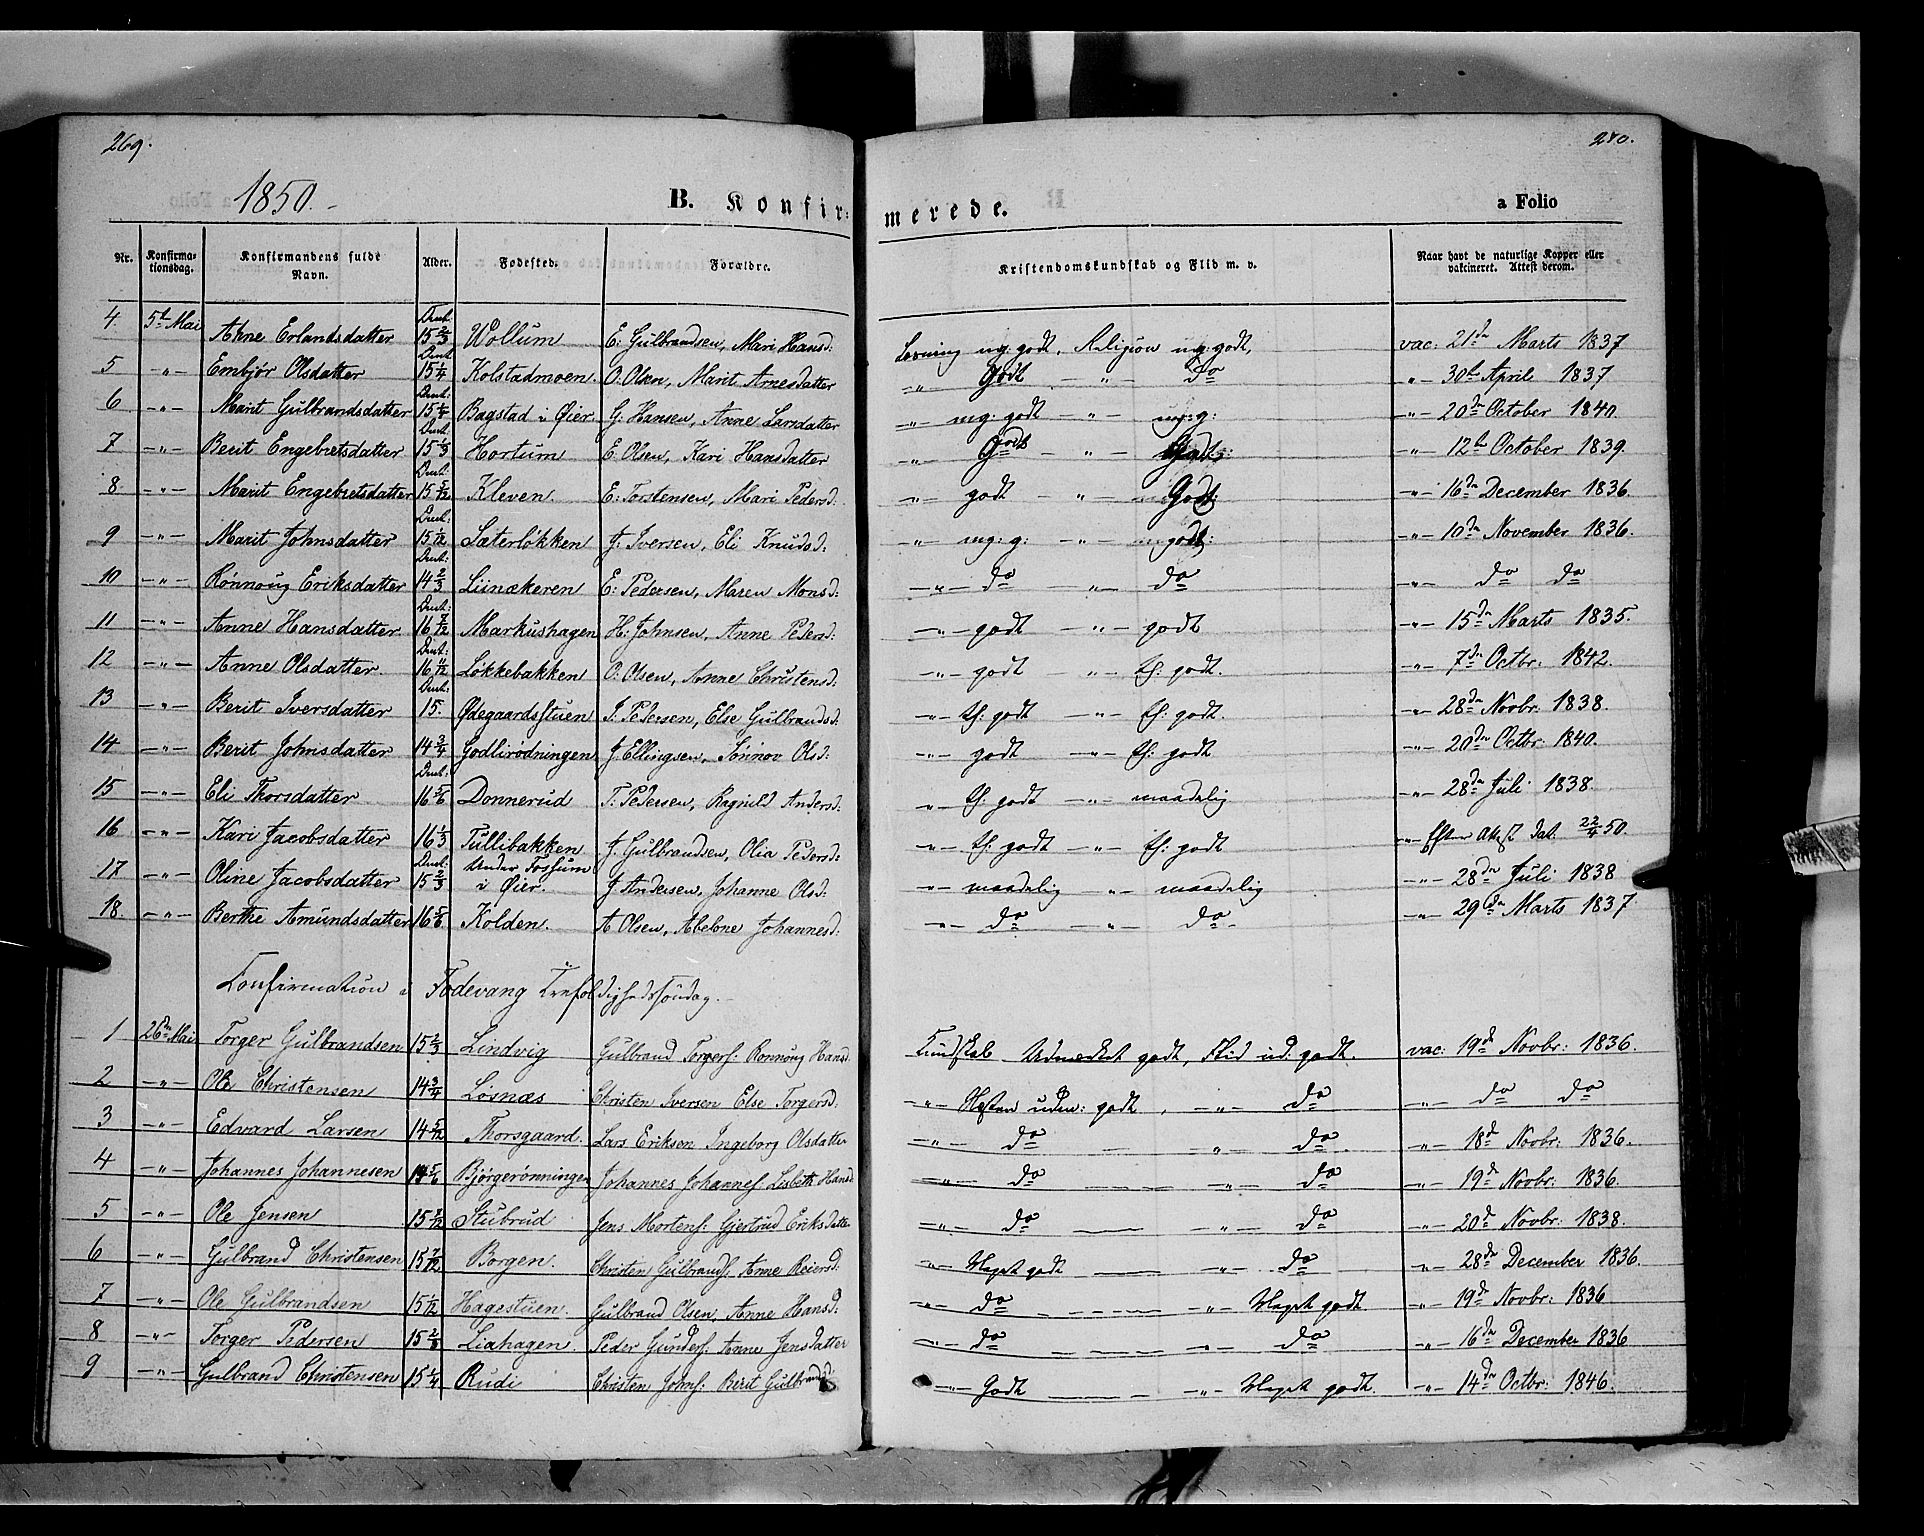 269. 270.
1850. B. Konfir: merede. a Folio
Nr. Konfirma-tionsdag. Konfirmandens fulde Navn. Alder. Fødested. Forældre. Kristendomskundskab og Flid m. v. Naar havt de naturlige Kopper eller vakcineret. Attest derom.
4. 5t Mai Ahne Erlandsdatter 15 2/3 Wollum E: Gulbrandsen, Mari Hansd: Læsning mg: godt, Religion mg: godt, vac: 21de Marts 1837
5 -"- Embjør Olsdatter 15 1/4 Kolstadmoen. O: Olsen, Marit Arnesdatter -"- Godt -"- do -"- 30te April 1837
6 -"- Marit Gulbrandsdatter Bagstad i Øier. G: Hansen, Anne Larsdatter -"- mg: godt -"- mg: g: -"- 20de October 1840.
7 -"- Berit Engebretsdatter 15 1/3 Hortum E: Olsen, Kari Hansdatter -"- Godt -"- Godt: -"- 12te October 1839.
8 -"- Marit Engebretsdatter 15 5/12 Kleven. E: Torstensen, Mari Pedersd: -"- godt -"- Godt: -"- 16de December 1836.
9 -"- Marit Johnsdatter 15 1/12 Sæterløkken J: Iversen, Eli Knudsd: -"- mg: g: -"- godt: -"- 10de November 1836.
10 -"- Rønnoug Eriksdatter 14 2/3 Liinækeren E: Pedersen, Maren Monsd: -"- do -"- do -"- do do
11 -"- Anne Hansdatter 16 7/12 Markushagen H: Johnsen, Anne Pedersd: -"- godt -"- godt -"- 15de Marts 1835.
12 -"- Anne Olsdatter. 16 1/12 Løkkebakken O: Olsen, Anne Christensd: -"- godt -"- tf: godt. -"- 7de Octbr: 1842.
13 -"- Berit Iversdatter 15. Ødegaardsstuen I: Pedersen, Else Gulbrandsd: -"- tf: godt -"- tf: godt. -"- 28de Novbr: 1838.
14 -"- Berit Johnsdatter 14 3/4 Godlirodningen J: Ellingsen, Sønnov Olsd: -"- godt -"- tf: godt -"- 20de Octbr: 1840.
15 -"- Eli Thorsdatter 16 5/6 Donnerud T: Pedersen, Ragnild Andersd: -"- tf: godt -"- maadelig -"- 28de Juli 1838.
16 -"- Kari Jacobsdatter 16 1/3 Tullibakken J: Gulbrandsen, Olia Pedersd: -"- tf: godt -"- tf: godt -"- Efter Attest dat. 22/4 50.
17 -"- Oline Jacobsdatter 15 2/3 Under Fossum i Øier. J: Andersen, Johanne Olsd: -"- maadelig -"- maadelig -"- 28de Juli 1838
18 -"- Berthe Amundsdatter 16 5/6 Kolden. A Olsen, Abelone Johannesd: -"- do -"- do -"- 29de Marts 1837.
Confirmation i Fodevang Trefoldighedssöndag.
1 26de Mai Torger Gulbrandsen 15 2/3 Lindvig Gulbrand Torgers: Rønnoug Hansd. Kundskab Udmærket godt, Flid ud: godt. vac: 19de Novbr: 1836.
2 -"- Ole Christensen 14 3/4 Løsnæs Christen Iversen Else Torgersd: -"- Næsten udm: godt, -"- do -"- do do
3 -"- Edvard Larsen 14 5/12 Thorsgaard. Lars Eriksen Ingeborg Olsdatter -"- do -"- do -"- 18de Novbr: 1836.
4 -"- Johannes Johannesen 14 5/6 Bjørgerønningen Johannes Johannes: Lisbeth Hansd -"- do -"- do -"- 19de Novbr: 1836.
5 -"- Ole Jensen 15 7/12 Stubrud Jens Mortens: Gjertrud Eriksdatter -"- do -"- do -"- 20de Novbr: 1838.
6 -"- Gulbrand Christensen 15 7/12 Borgen. Christen Gulbrands: Anne Reiersd: -"- Meget godt -"- do -"- 28de December 1836.
7 -"- Ole Gulbrandsen 15 1/12 Hagestuen. Gulbrand Olsen, Anne Hansd: -"- do -"- Meget godt -"- 19de Novbr: 1836
8 -"- Torger Pedersen 15 2/3 Liahagen. Peder Gunders: Anne Jensdatter -"- do -"- do -"- 16de December 1836
9 -"- Gulbrand Christensen 15 1/4 Rudi Christen Johns: Berit Gulbrandsd: -"- Godt -"- Meget godt. -"- 14de Octbr: 1846.